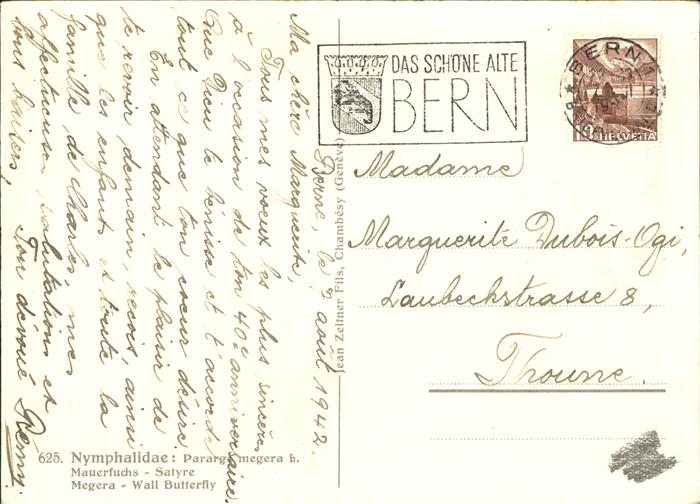 Berne, le 7 août 1942.
Ma chère Marguerite,
Tous mes voeux les plus sincères
à l'occasion de ton 40e anniversaire.
Que Dieu te bénisse et t'accorde
tout ce que ton coeur désire.
En attendant le plaisir de
te revoir demain, reçois, ainsi
que les enfants et toute la
famille, de Charles mes
affectueuses salutations et
bons baisers,
Ton dévoué Remy.
DAS SCHÖNE ALTE
BERN
BERN
10 HELVETIA
Madame
Marguerite Dubois-Ogi,
Laubeckstrasse 8,
Thoune.
Jean Zeltner Fils, Chambésy (Genève)
625. Nymphalidae: Pararge megera h.
Mauerfuchs - Satyre
Megera - Wall Butterfly